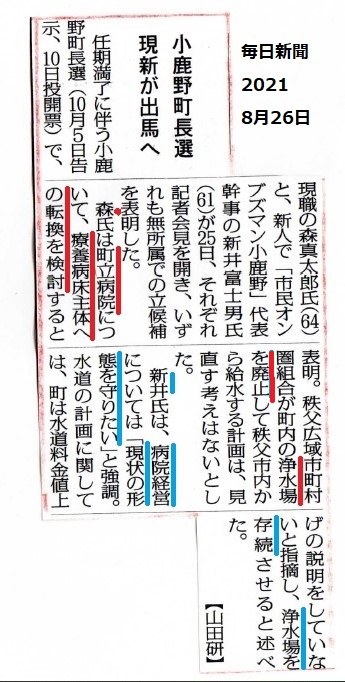 毎日新聞
2021
8月26日
小鹿野町長選
現新が出馬へ
任期満了に伴う小鹿
野町長選(10月5日告
示、10日投開票)で、
現職の森真太郎氏(64)
と、新人で「市民オン
ブズマン小鹿野」代表
幹事の新井富士男氏
(61)が25日、それぞれ
記者会見を開き、いず
れも無所属での立候補
を表明した。
森氏は町立病院につ
いて、療養病床主体へ
の転換を検討すると
表明。秩父広域市町村
圏組合が町内の浄水場
を廃止して秩父市内か
ら給水する計画は、見
直す考えはないとし
た。
新井氏は、病院経営
については「現状の形
態を守りたい」と強調。
水道の計画に関して
は、町は水道料金値上
げの説明をしていな
いと指摘し、浄水場を
存続させると述べ
た。
【山田研】